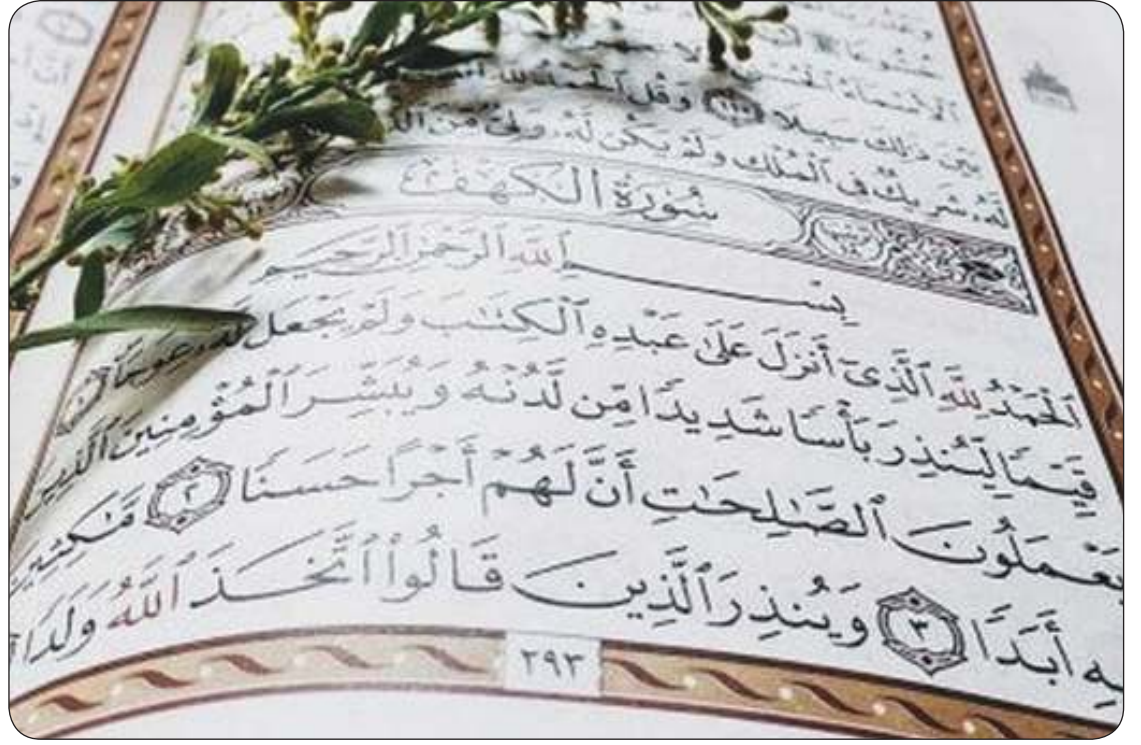 ٱلْأَسْمَآءُ ٱلْحُسْنَىٰ
بَيْنَ ذَٰلِكَ سَبِيلًا ١١٠ وَقُلِ ٱلْحَمْدُ لِلَّهِ
لَّهُۥ شَرِيكٌ فِى ٱلْمُلْكِ وَلَمْ يَكُن لَّهُۥ وَلِىٌّ مِّنَ
سُورَةُ الكَهْفِ
بِسْمِ ٱللَّهِ ٱلرَّحْمَٰنِ ٱلرَّحِيمِ
ٱلْحَمْدُ لِلَّهِ ٱلَّذِىٓ أَنزَلَ عَلَىٰ عَبْدِهِ ٱلْكِتَٰبَ وَلَمْ يَجْعَل لَّهُۥ عِوَجَا ۜ ١
قَيِّمًا لِّيُنذِرَ بَأْسًا شَدِيدًا مِّن لَّدُنْهُ وَيُبَشِّرَ ٱلْمُؤْمِنِينَ ٱلَّذِينَ
يَعْمَلُونَ ٱلصَّٰلِحَٰتِ أَنَّ لَهُمْ أَجْرًا حَسَنًا ٢ مَّٰكِثِينَ
فِيهِ أَبَدًا ٣ وَيُنذِرَ ٱلَّذِينَ قَالُوا۟ ٱتَّخَذَ ٱللَّهُ وَلَدًا
٢٩٣